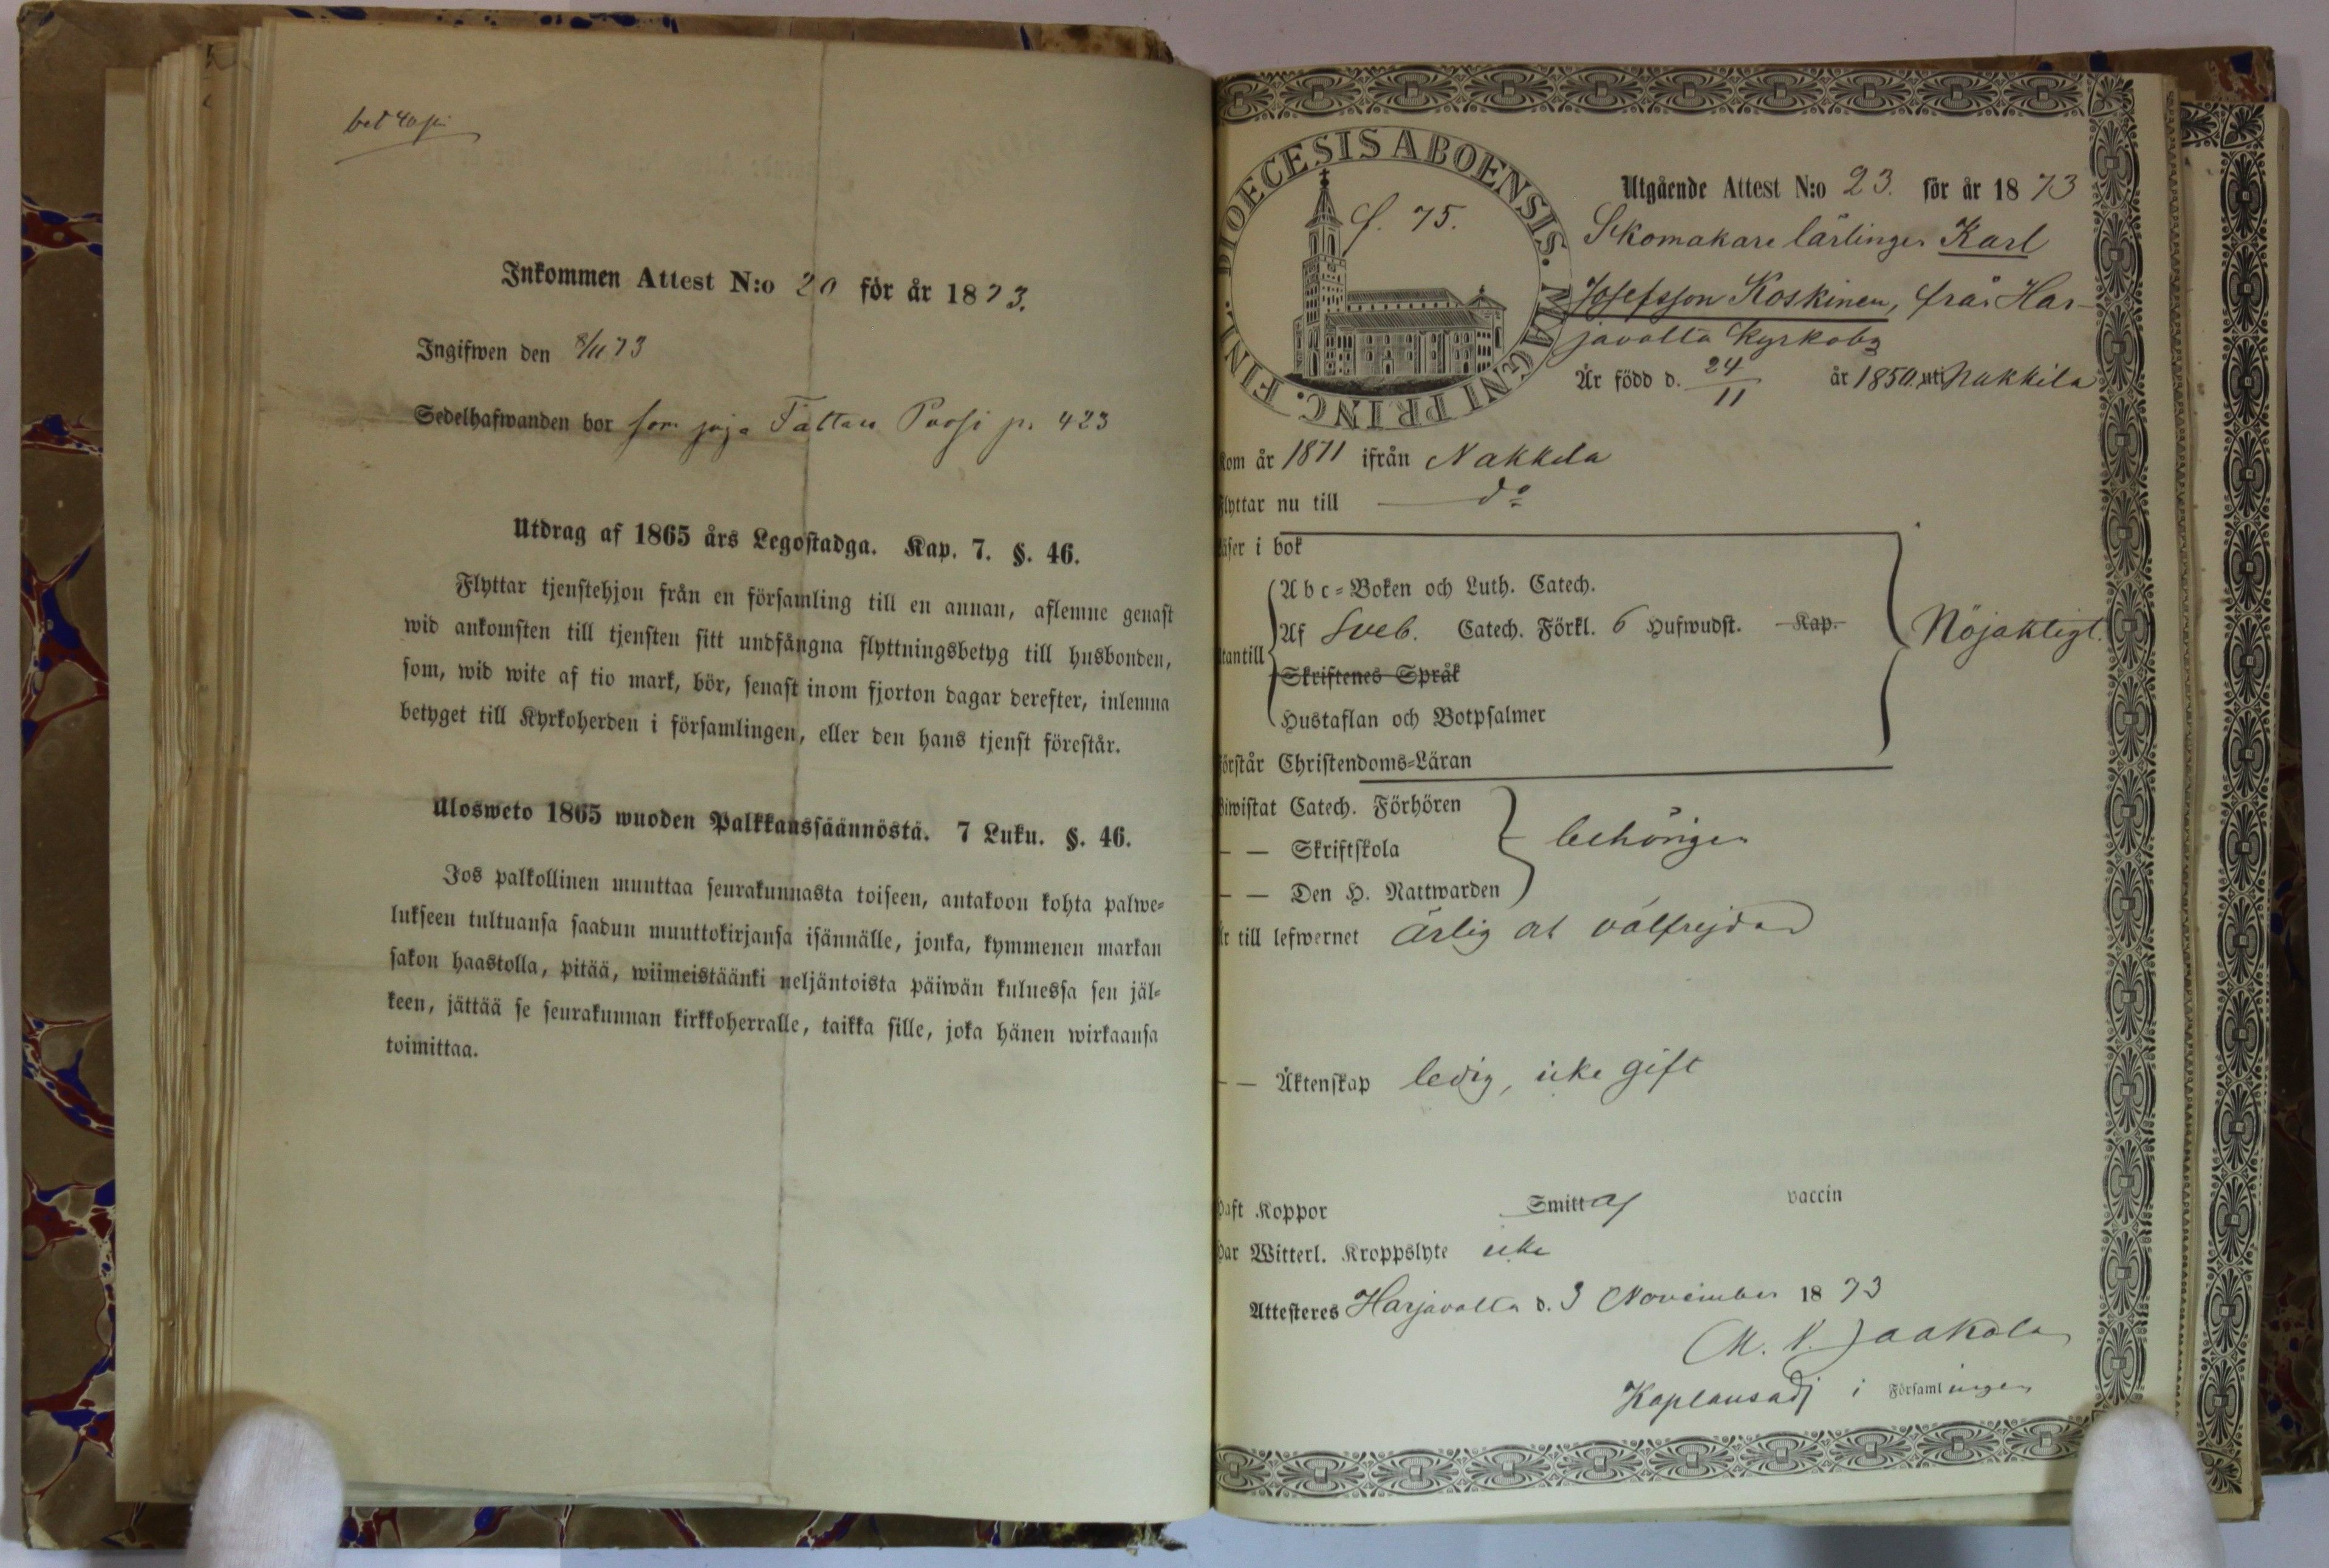 bet 40 pi
Inkommen Attest N:o 20 för år 1873.
Ingifwen den 8/11 73
Sedelhafwanden bor som p. 423
Utdrag af 1865 års Legostadga. Kap. 7. §. 46.
Flyttar tjenstehjon från en församling till en annan, aflemne genast
wid ankomsten till tjensten sitt undfångna flyttningsbetyg till husbonden,
som, wid wite af tio mark, bör, senast inom fjorton dagar derefter, inlemna
betyget till Kyrkoherden i församlingen, eller den hans tjenst förestår.
Ulosweto 1865 wuoden Palkkaussäännöstä. 7 Luku. §. 46.
Jos palkollinen muuttaa seurakunnasta toiseen, antakoon kohta palwe-
lukseen tultuansa saadun muuttokirjansa isännälle, jonka, kymmenen markan
sakon haastolla, pitää, wiimeistäänki neljäntoista päiwän kuluessa sen jäl-
keen, jättää se seurakunnan kirkkoherralle, taikka sille, joka hänen wirkaansa
toimittaa.
DIOECESIS ABOENSIS. MAGNI PRINC. FINL.
f. 75.
Utgående Attest N:o 23. för år 1873
Skomakare lärlingen Karl
Josefsson Koskinen, från Har-
javalta Kyrkoby
Är född d. 24/11 år 1850. uti Nakkila
Kom år 1871 ifrån Nakkila
Flyttar nu till do
Läser i bok
Utantill
Abc-Boken och Luth. Catech.
Af Sveb. Catech. Förkl. 6 Hufwudst. Kap.
Skriftenes Språk
Hustaflan och Botpsalmer
Nöjaktigt.
Förstår Christendoms-Läran
Biwistat Catech. Förhören
— — Skriftskola
— — Den H. Nattwarden
behörigen
Är till lefwernet ärlig och välfrejdad
— — Äktenskap ledig, icke gift
Haft Koppor Smitt vaccin
Har Witterl. Kroppslyte icke
Attesteres Harjavalta d. 3 November 1873
M. N. Jaakola
Kaplansadj i Församlingen